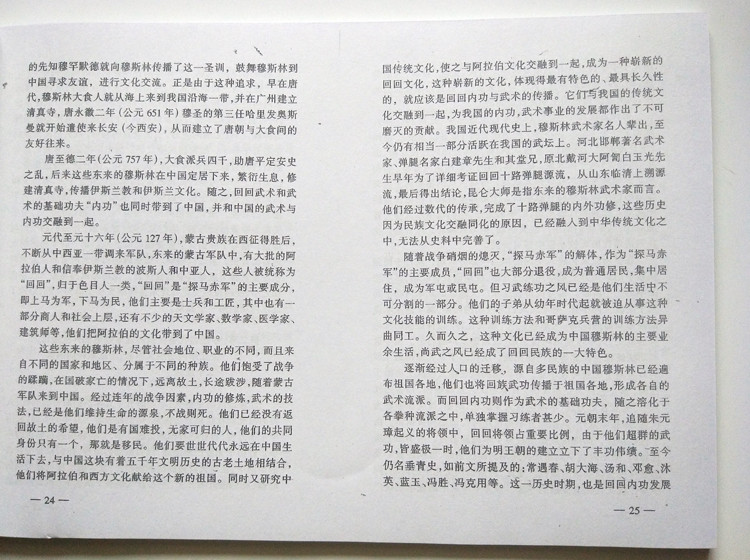 的先知穆罕默德就向穆斯林传播了这一圣训，鼓舞穆斯林到
中国寻求友谊，进行文化交流。正是由于这种追求，早在唐
代，穆斯林大食人就从海上来到我国沿海一带，并在广州建立
清真寺，唐永徽二年（公元651年）穆圣的第三任哈里发奥斯
曼就开始遣使来长安（今西安），从而建立了唐朝与大食间的
友好往来。
唐至德二年（公元757年），大食派兵四千，助唐平定安史
之乱，后来这些东来的穆斯林在中国定居下来，繁衍生息，修
建清真寺，传播伊斯兰教和伊斯兰文化。随之，回回武术和武
术的基础功夫“内功”也同时带到了中国，并和中国的武术与
内功交融到一起。
元代至元十六年（公元127年），蒙古贵族在西征得胜后，
不断从中西亚一带调来军队，东来的蒙古军队中，有大批的阿
拉伯人和信奉伊斯兰教的波斯人和中亚人，这些人被统称为
“回回”，归于色目人一类，“回回”是“探马赤军”的主要成分，
即上马为军，下马为民，他们主要是士兵和工匠，其中也有一
部分商人和社会上层，还有不少的天文学家、数学家、医学家、
建筑师等，他们把阿拉伯的文化带到了中国。
这些东来的穆斯林，尽管社会地位、职业的不同，而且来
自不同的国家和地区、分属于不同的种族。他们饱受了战争
的蹂躏，在国破家亡的情况下，远离故土，长途跋涉，随着蒙古
军队来到中国。经过连年的战争因素，内功的修炼，武术的技
法，已经是他们维持生命的源泉，不战则死。他们已经没有返
回故土的希望，他们是有国难投，无家可归的人，他们的共同
身份只有一个，那就是移民。他们要世世代代永远在中国生
活下去，与中国这块有着五千年文明历史的古老土地相结合，
他们将阿拉伯和西方文化献给这个新的祖国。同时又研究中
— 24 —
国传统文化，使之与阿拉伯文化交融到一起，成为一种崭新的
回回文化，这种崭新的文化，体现得最有特色的、最具长久性
的，就应该是回回内功与武术的传播。它们与我国的传统文
化交融到一起，为我国的内功，武术事业的发展都作出了不可
磨灭的贡献。我国近代现代史上，穆斯林武术家名人辈出，至
今仍有相当一部分活跃在我国的武坛上。河北邯郸著名武术
家、弹腿名家白建章先生和其堂兄，原北戴河大阿訇白玉光先
生早年为了详细考证回回十路弹腿源流，从山东临清上溯源
流，最后得出结论，昆仑大师是指东来的穆斯林武术家而言。
他们经过数代的传承，完成了十路弹腿的内外功修，这些历史
因为民族文化交融同化的原因，已经融入到中华传统文化之
中，无法从史料中完善了。
随着战争硝烟的熄灭，“探马赤军”的解体，作为“探马赤
军”的主要成员，“回回”也大部分退役，成为普通居民，集中居
住，成为军屯或民屯。但习武练功之风已经是他们生活中不
可分割的一部分。他们的子弟从幼年时代起就被迫从事这种
文化技能的训练。这种训练方法和哥萨克兵营的训练方法异
曲同工。久而久之，这种文化已经成为中国穆斯林的主要业
余生活，尚武之风已经成了回回民族的一大特色。
逐渐经过人口的迁移，源自多民族的中国穆斯林已经遍
布祖国各地，他们也将回族武功传播于祖国各地，形成各自的
武术流派。而回回内功则作为武术的基础功夫，随之溶化于
各拳种流派之中，单独掌握习练者甚少。元朝末年，追随朱元
璋起义的将领中，回回将领占重要比例，由于他们超群的武
功，皆盛极一时，他们为明王朝的建立立下了丰功伟绩。至今
仍名垂青史，如前文所提及的：常遇春、胡大海、汤和、邓愈、沐
英、蓝玉、冯胜、冯克用等。这一历史时期，也是回回内功发展
— 25 —